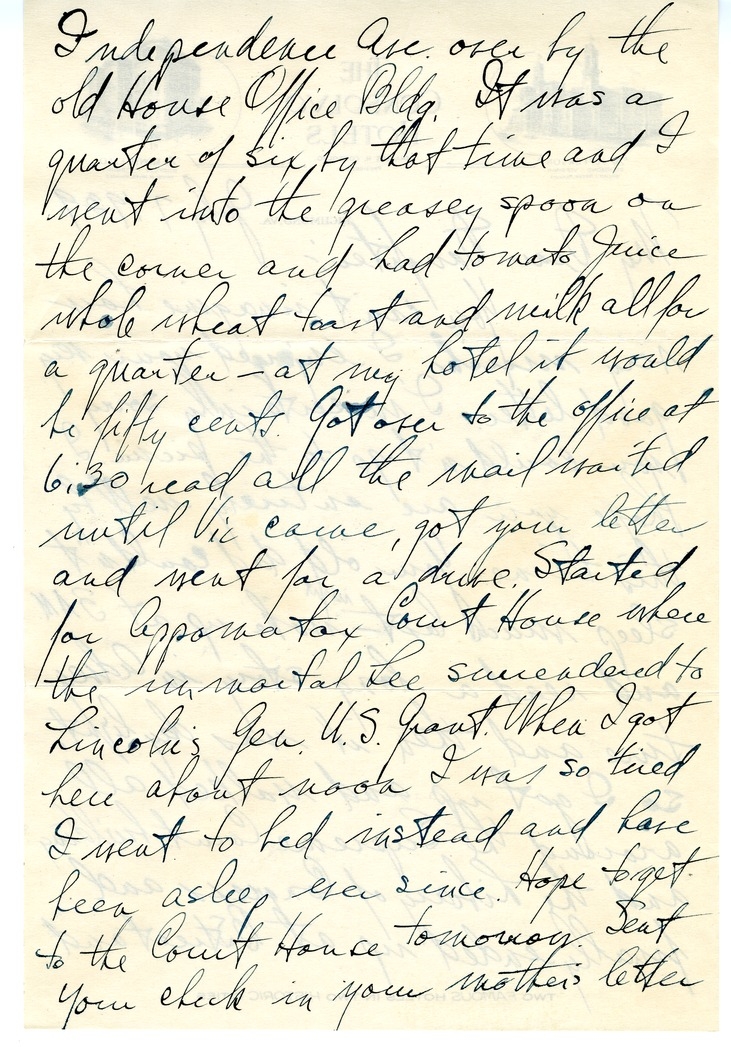 Independence Ave. over by the
old House Office Bldg. It was a
quarter of six by that time and I
went into the greasey spoon on
the corner and had tomato juice
whole wheat toast and milk all for
a quarter - at my hotel it would
be fifty cents. Got over to the office at
6:30 read all the mail waited
until Vic came, got your letter
and went for a drive. Started
for Appomatax Court House where
the immortal Lee surrendered to
Lincoln's Gen. U.S. Grant. When I got
here about noon I was so tired
I went to bed instead and have
been asleep ever since. Hope to get
to the Court House tomorrow. Sent
your check in your mother's letter